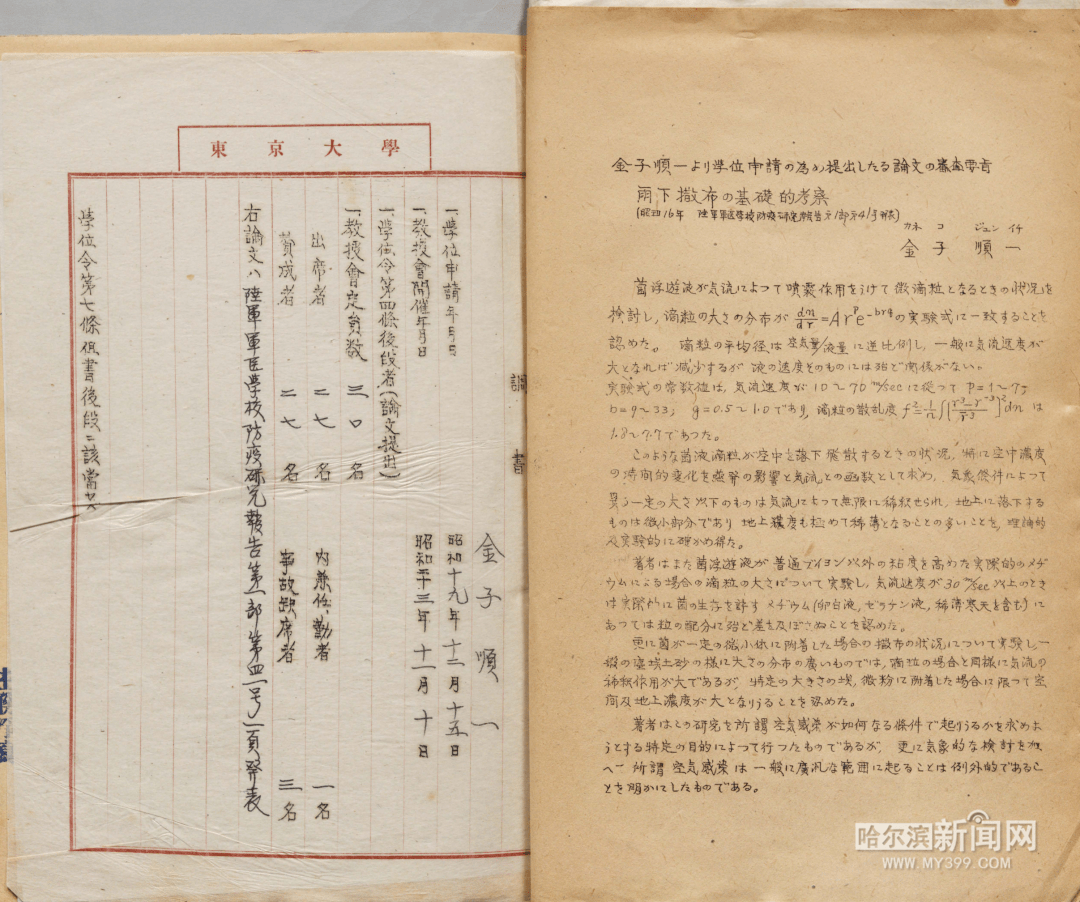 東京大學
調書
金子順一
一、學位申請年月日 昭和十九年十二月十五日
一、教授會開催年月日 昭和二十三年十一月十日
一、學位令第四條後段者(論文提出)
一、教授會定員数 三〇名 内兼任、勤者 一名
出席者 二七名 事故缺席者 三名
賛成者 二七名
右論文ハ陸軍軍医学校防疫研究報告第一部第四一号ニ頁発表
學位令第七條但書後段ニ該當ス
金子順一より学位申請の為め提出したる論文の審査要旨
雨下撒布の基礎的考察
(昭和16年 陸軍軍医学校防疫研究報告第1部第41号発表)
カネ コ ジュン イチ
金子 順一
菌浮遊液が気流によって噴霧作用をうけて微滴粒となるときの状況を
検討し、滴粒の大さの分布が dn/dr=Ar^p e^-br^q の実験式に一致することを
認めた。滴粒の平均径は空気量/流量に逆比例し、一般に気流速度が
大となれば減少するが液の速度そのものには殆ど関係がない。
実験式の常数値は、気流速度が10~70 m/secに従って p=1~7;
b=9~33; q=0.5~1.0であり、滴粒の散乱度 は
1.8~7.7であった。
このような菌液滴粒が空中を落下飛散するときの状況、特に空中濃度
の時間的変化を蒸発の影響と気流との函数として求め、気象条件によって
異る一定の大さ以下のものは気流によって無限に稀釈せられ、地上に落下する
ものは微小部分であり地上濃度も極めて稀薄となることの多いことを、理論的
及実験的に確かめ得た。
著者はまた菌浮遊液が普通ブイヨン以外の粘度を高めた実際的のメヂ
ウムによる場合の滴粒の大さについて実験し、気流速度が30 m/sec以上のとき
は実際的に菌の生存を許すメヂウム(卵白液、ゼラチン液、稀薄寒天を含む)に
あっては粒の配分に殆ど差を及ぼさぬことを認めた。
更に菌が一定の微小体に附着した場合の撒布の状況について実験し一
般の塵埃土砂の様に大さの分布の廣いものでは、滴粒の場合と同様に気流の
稀釈作用が大であるが、特定の大きさの埃、微粉に附着した場合に限って空
間及地上濃度が大となりうることを認めた。
著者はこの研究を所謂空気感染が如何なる條件で起りうるかを求めよ
うとする特定の目的によって行ったものであるが、更に気象的な検討を加
へ 所謂空気感染は一般に廣汎な範囲に起ることは例外的であるこ
とを明かにしたものである。
哈尔滨新闻网
WWW.MY399.COM